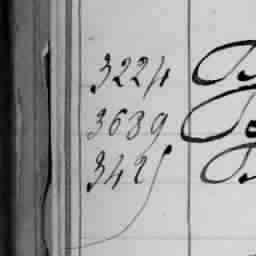 3224
3639
3425